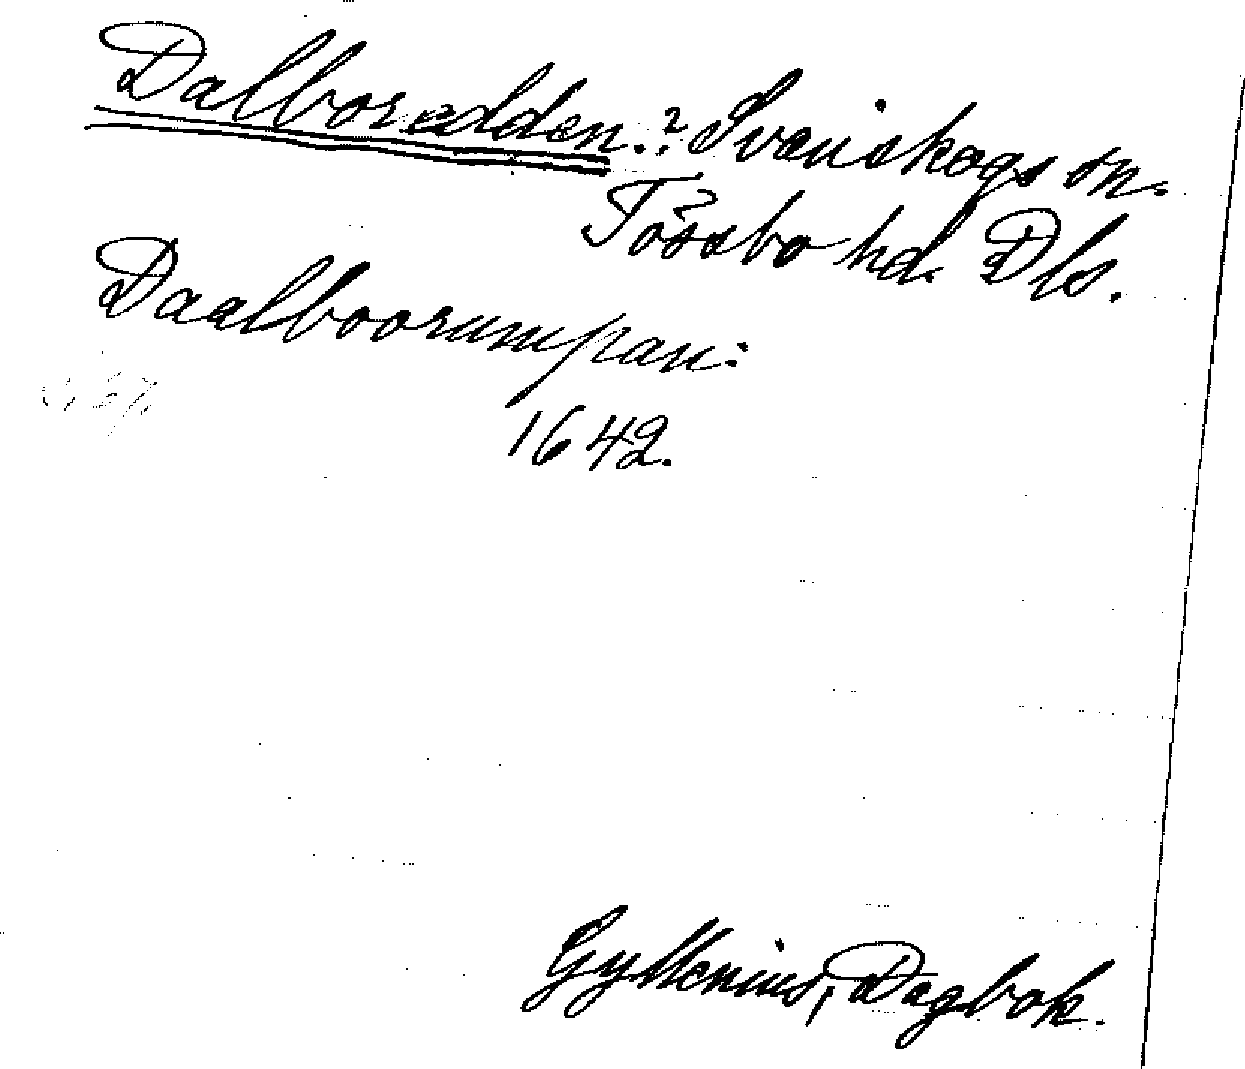 Dalboredden.? Svanskogs sn.
Tössbo hd. Dls.
Daalboorumpan:
1642.
Gyllenius, Dagbok.